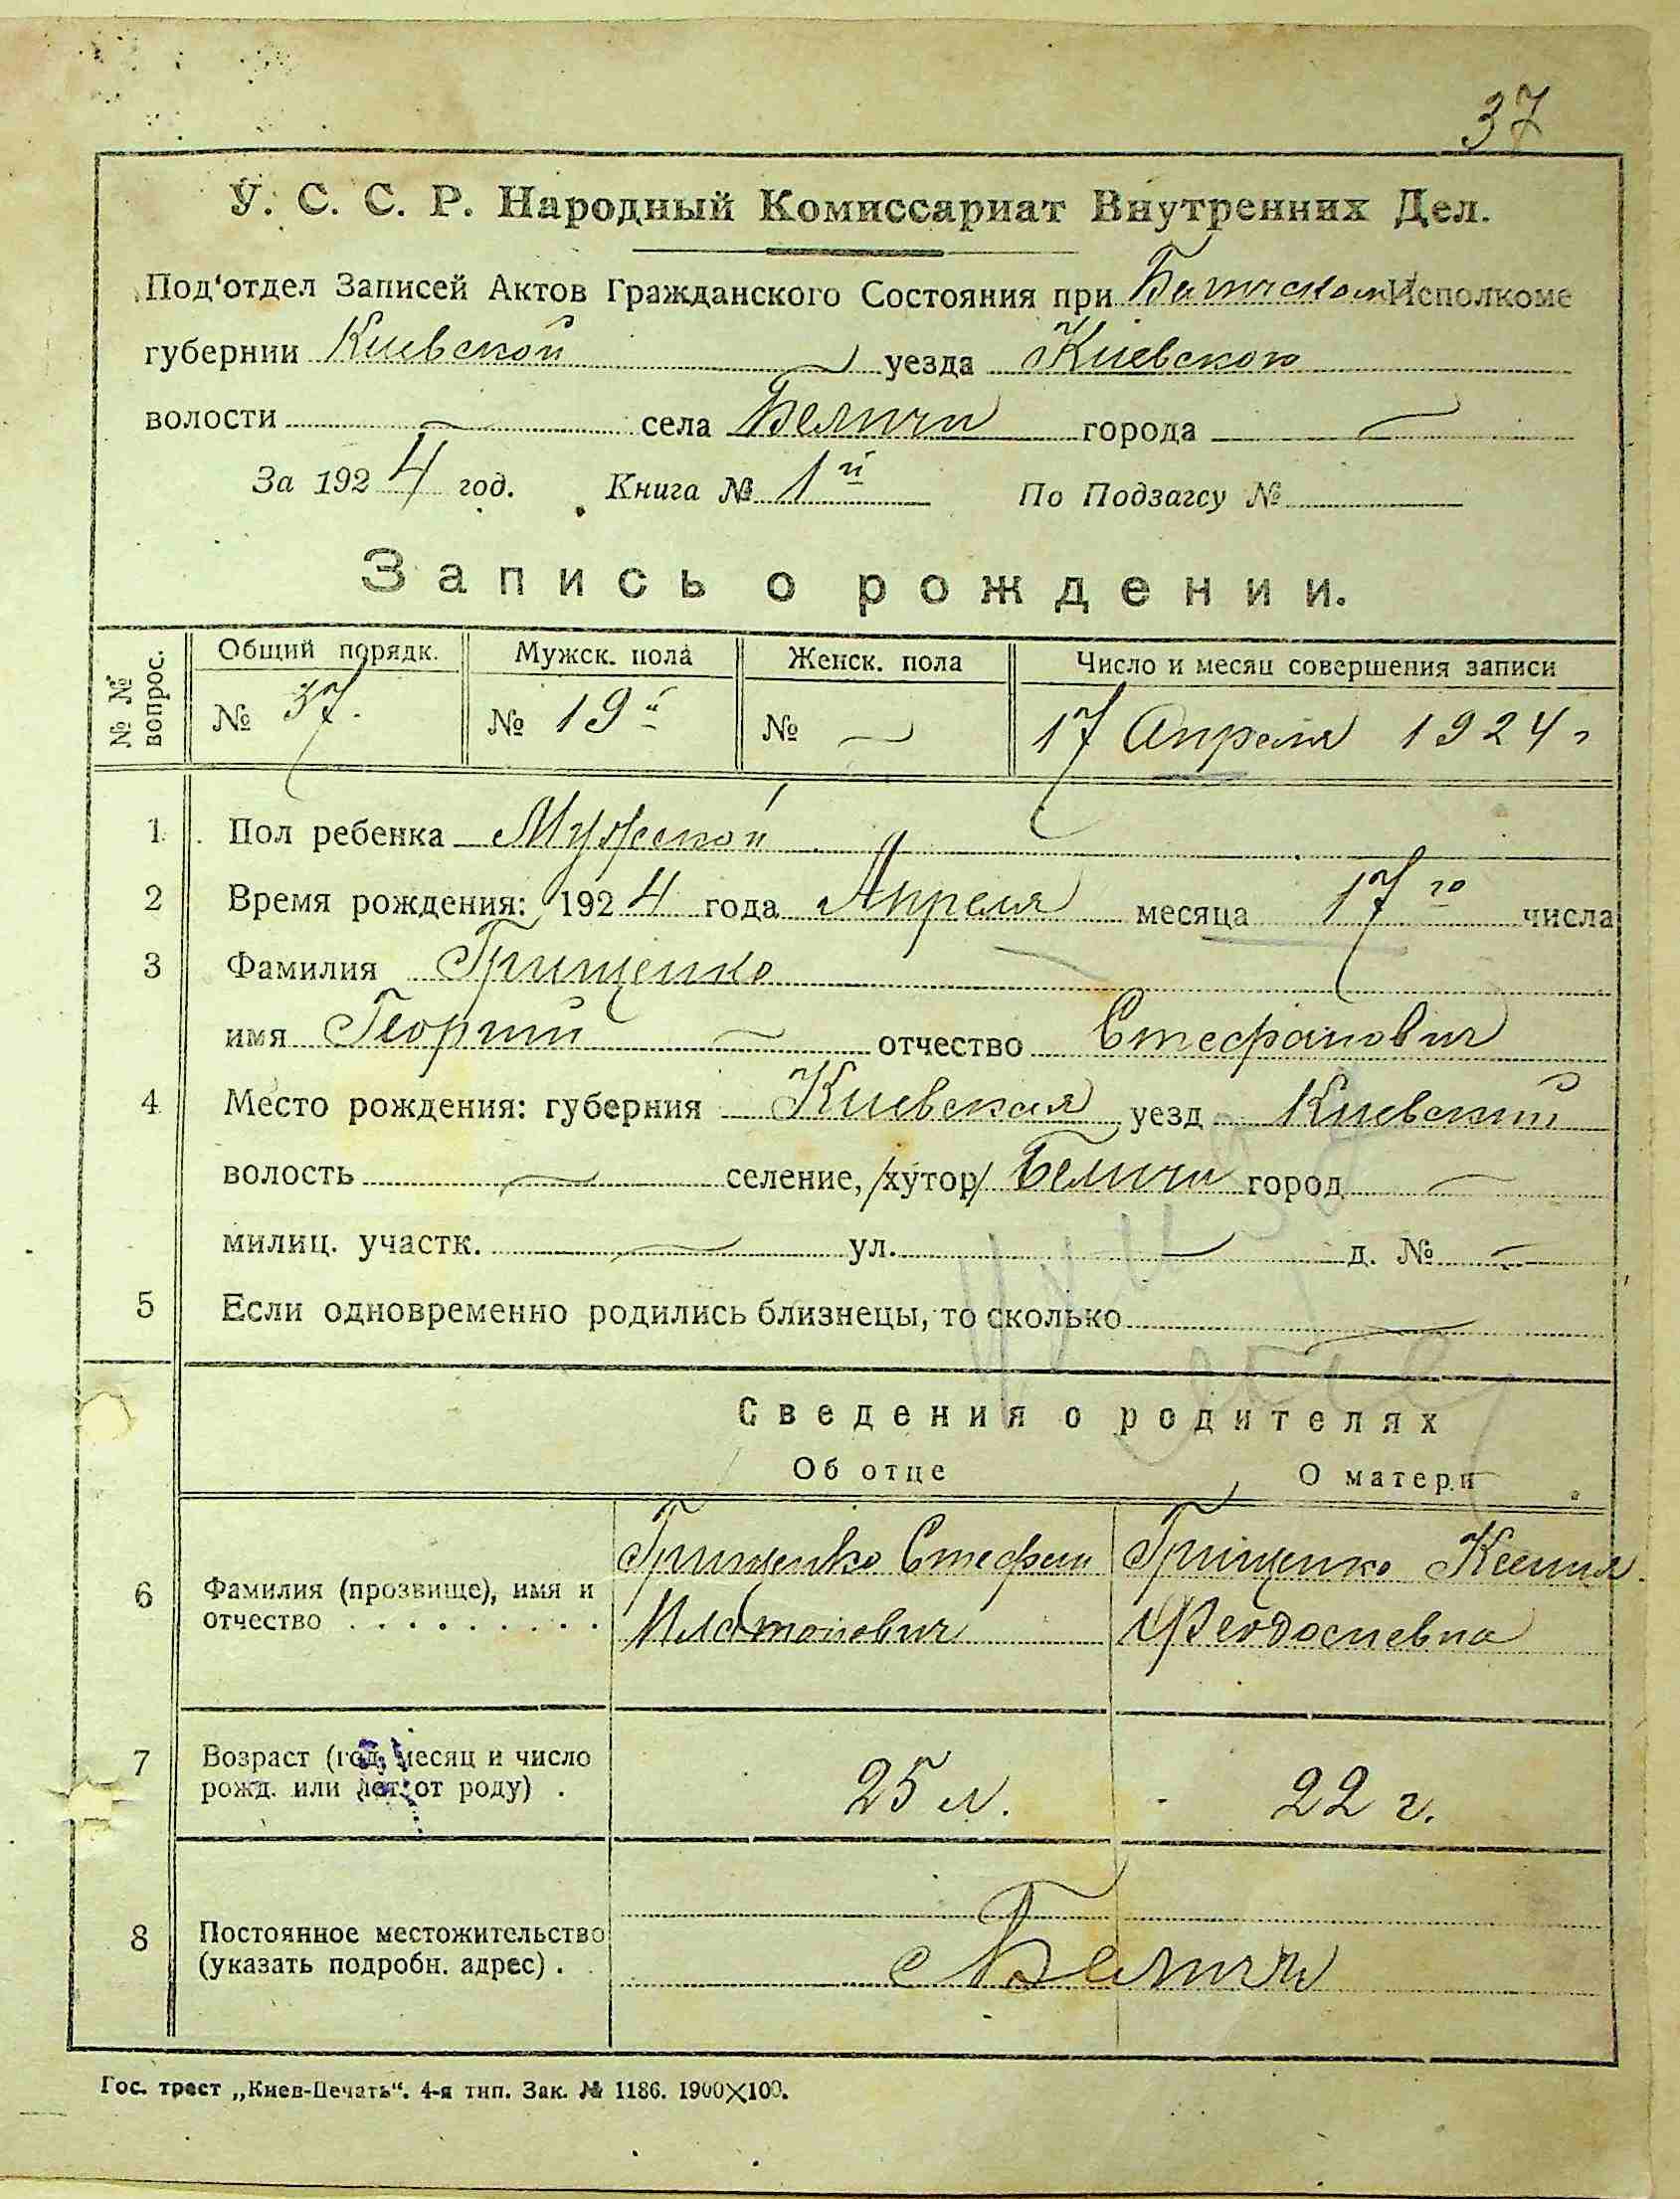 37
У. С. С. Р. Народный Комиссариат Внутренних Дел.
Под‘отдел Записей Актов Гражданского Состояния при Исполкоме
губернии Киевской уезда Киевского
волости села Беличи города
За 1924 год. Книга № 1й По Подзагсу №
Запись о рождении.
№ № вопрос. Общий порядк. Мужск. пола Женск. пола Число и месяц совершения записи
№ 37. № 19й № 17 Апреля 1924 г
1 Пол ребенка Мужской
2 Время рождения: 1924 года Апреля месяца 17го числа
3 Фамилия Грищенко
имя Георгий отчество Стефанович
4 Место рождения: губерния Киевская уезд Киевский
волость селение, /хутор/ Беличи город
милиц. участк. ул. д. №
5 Если одновременно родились близнецы, то сколько
Сведения о родителях
Об отце О матери
6 Фамилия (прозвище), имя и отчество . . . . . . . . .
Грищенко Стефан Грищенко Ксения
Платонович Феодосиевна
7 Возраст (год, месяц и число
рожд. или лет от роду) . 25 л. 22 г.
8 Постоянное местожительство
(указать подробн. адрес) . с Беличи
Гос. трест „Киев-Печать“. 4-я тип. Зак. № 1186. 1900×100.